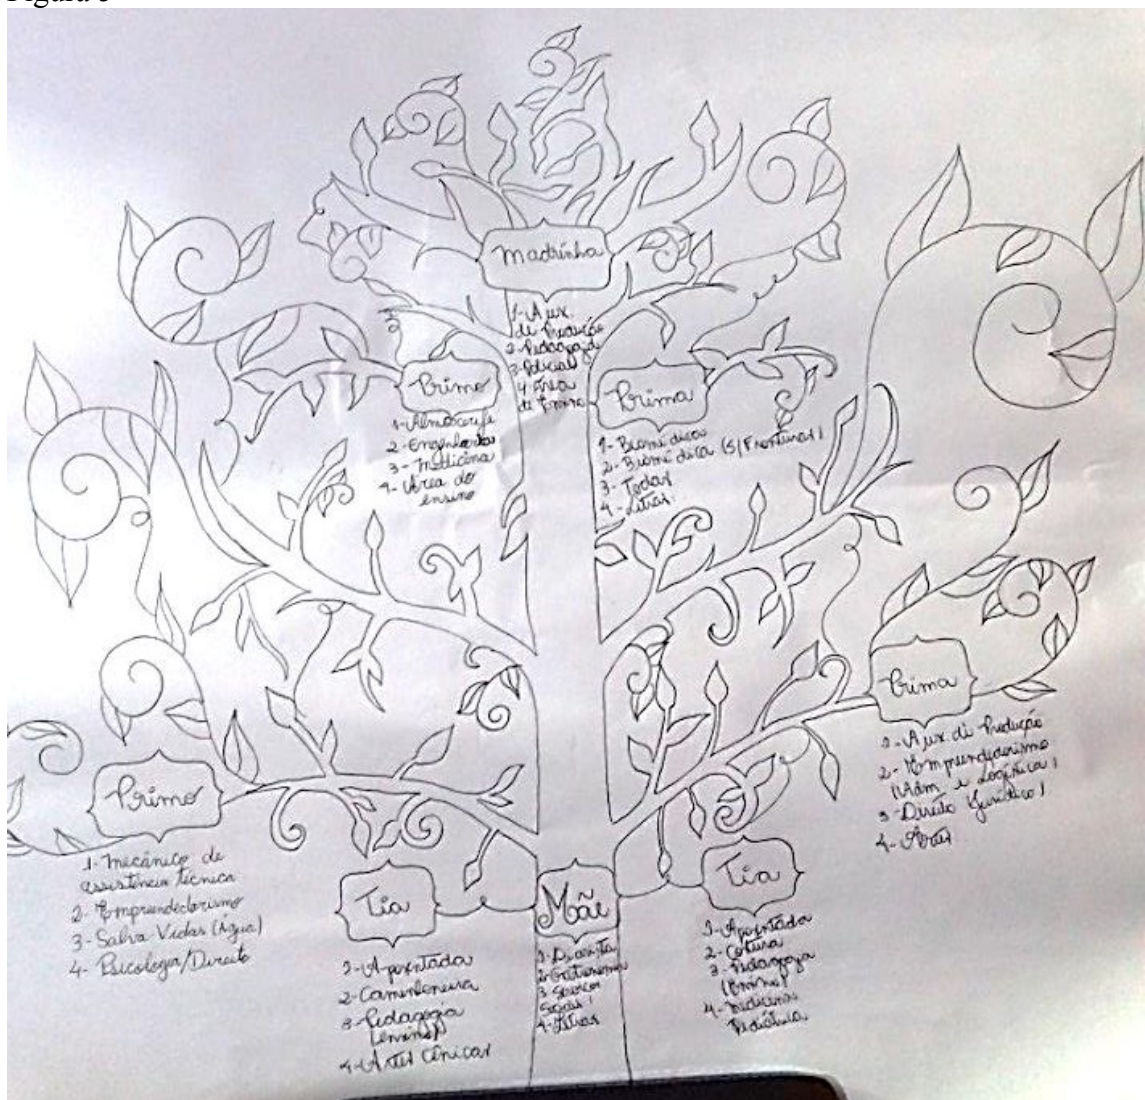 Madrinha
1- Aux.
de Produção
2- Pedagogia
3- Policial
4- Área
de Ensino
Primo
1- Almoxarife
2- Engenharia
3- Medicina
4- Área do
ensino
Prima
1- Biomédica
2- Biomédica (S/ Fronteiras)
3- Todas
4- Letras
Prima
1- Aux. de Produção
2- Empreendedorismo
(Adm e Logística)
3- Direito (Jurídico)
4- Artes
Primo
1- Mecânico de
assistência técnica
2- Empreendedorismo
3- Salva Vidas (Água)
4- Psicologia/Direito
Tia
1- Aposentada
2- Caminhoneira
3- Pedagogia
(ensino)
4- Artes Cênicas
Mãe
1- Diarista
2-
3- Serviços
Sociais
4- Letras
Tia
1- Aposentada
2- Costura
3- Pedagogia
(Ensino)
4- Medicina
Pediátrica